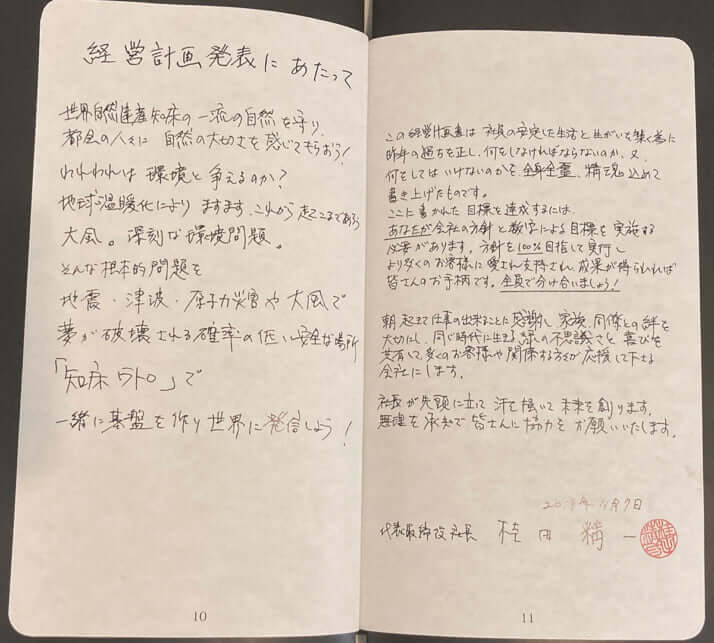 経営計画発表にあたって
世界自然遺産知床の一流の自然を守り、
都会の人々に自然の大切さを感じてもらおう!
われわれは環境と争えるのか?
地球温暖化によりますます、これから起こるであろう
大風。深刻な環境問題。
そんな根本的問題を
地震・津波・原子力災害や大風で
夢が破壊される確率の低い安全な場所
「知床ウトロ」で
一緒に基盤を作り世界に発信しよう!
10
この経営計画書は社員の安定した生活と生がいを築く為に
昨年の過ちを正し、何をしなければならないのか、又、
何をしてはいけないのかを、全身全霊、精魂込めて
書き上げたものです。
ここに書かれた目標を達成するには、
あなたが会社の方針と数字による目標を実施する
必要があります。方針を100%目指して実行し
より多くのお客様に愛され支持され、成果が得られれば
皆さんのお手柄です。全員で分け合いましょう!
朝起きて仕事の出来ることに感謝し、家族、同僚との絆を
大切にし、同じ時代に生きる縁の不思議さと喜びを
共有して、多くのお客様や関係する方々が応援して下さる
会社にします。
社長が先頭に立って汗を掻いて未来を創ります。
無理を承知で皆さんに協力をお願いいたします。
月9日
代表取締役社長 桂田 精一
11